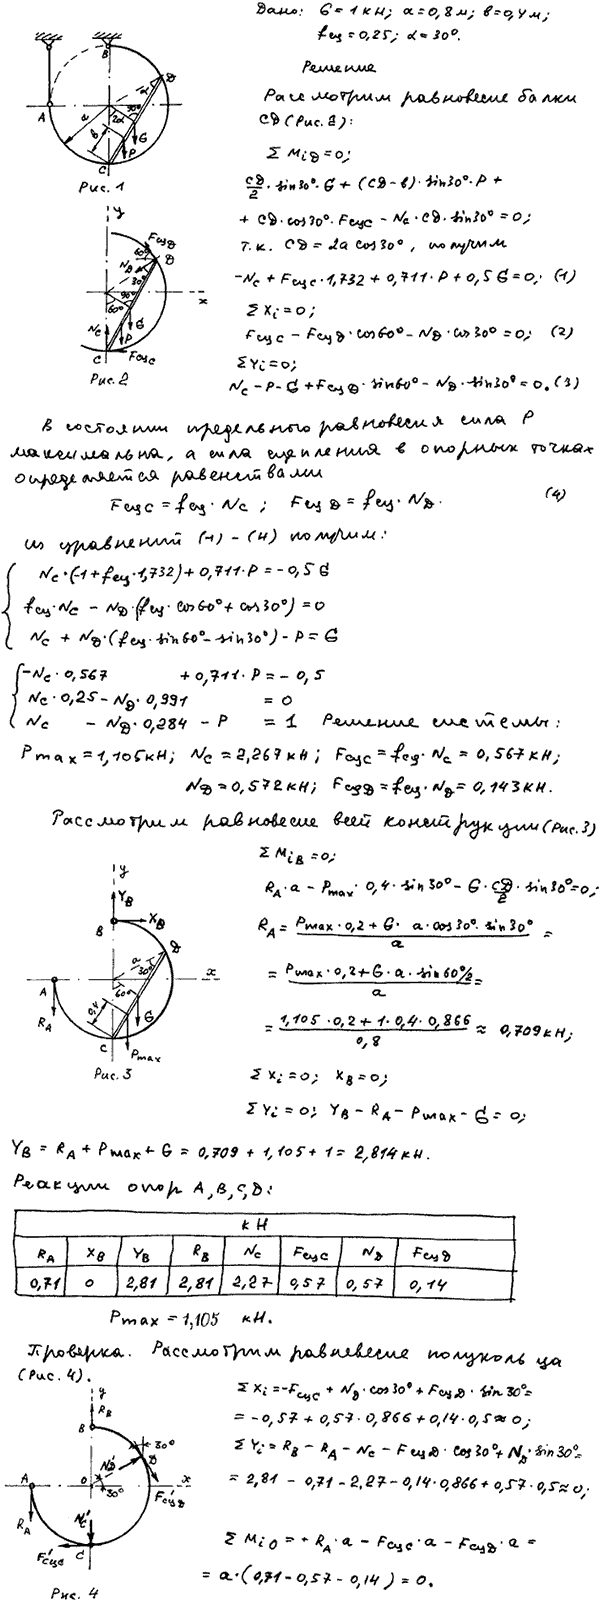 Дано: G = 1 кН; a = 0,8 м; в = 0,4 м;
fсц = 0,25; α = 30°.
Решение
Рассмотрим равновесие балки
CD (Рис. 2):
Σ MiD = 0;
CD/2 · sin30° · G + (CD - в) · sin30° · P +
+ CD · cos30° · FсцC - NC · CD · sin30° = 0;
т.к. CD = 2a cos30°, получим
-NC + FсцC · 1,732 + 0,711 · P + 0,5 G = 0; (1)
Σ Xi = 0;
FсцC - FсцD · cos60° - ND · cos30° = 0; (2)
Σ Yi = 0;
NC - P - G + FсцD · sin60° - ND · sin30° = 0. (3)
A
B
D
a
в
α
2α
90°
G
P
C
Рис. 1
y
FсцD
60°
ND
D
30°
90°
60°
x
NC
G
P
C
FсцC
Рис. 2
В состоянии предельного равновесия сила P
максимальна, а сила сцепления в опорных точках
определяется равенствами
FсцC = fсц · NC; FсцD = fсц · ND. (4)
из уравнений (1) - (4) получим:
NC · (-1 + fсц · 1,732) + 0,711 · P = -0,5 G
fсц · NC - ND · (fсц · cos60° + cos30°) = 0
NC + ND · (fсц · sin60° - sin30°) - P = G
-NC · 0,567 + 0,711 · P = -0,5
NC · 0,25 - ND · 0,991 = 0
NC - ND · 0,284 - P = 1 Решение системы:
Pmax = 1,105 кН; NC = 2,267 кН; FсцC = fсц · NC = 0,567 кН;
ND = 0,572 кН; FсцD = fсц · ND = 0,143 кН.
Рассмотрим равновесие всей конструкции (Рис. 3)
Σ MiB = 0;
RA · a - Pmax · 0,4 · sin30° - G · CD/2 · sin30° = 0;
RA = (Pmax · 0,2 + G · a · cos30° · sin30°)/a =
= (Pmax · 0,2 + G · a · sin60°/2)/a =
= (1,105 · 0,2 + 1 · 0,4 · 0,866)/0,8 ≈ 0,709 кН;
Σ Xi = 0; XB = 0;
Σ Yi = 0; YB - RA - Pmax - G = 0;
y
YB
B
XB
D
a
30°
x
60°
A
RA
0,4
G
C
Pmax
Рис. 3
YB = RA + Pmax + G = 0,709 + 1,105 + 1 = 2,814 кН.
Реакции опор A, B, C, D:
кН
RA XB YB RB NC FсцC ND FсцD
0,71 0 2,81 2,81 2,27 0,57 0,57 0,14
Pmax = 1,105 кН.
Проверка. Рассмотрим равновесие полукольца
(Рис. 4).
Σ Xi = -FсцC + ND · cos30° + FсцD · sin30° =
= -0,57 + 0,57 · 0,866 + 0,14 · 0,5 ≈ 0;
Σ Yi = RB - RA - NC - FсцD · cos30° + ND · sin30° =
= 2,81 - 0,71 - 2,27 - 0,14 · 0,866 + 0,57 · 0,5 ≈ 0;
Σ MiO = + RA · a - FсцC · a - FсцD · a =
= a · (0,71 - 0,57 - 0,14) = 0.
y
RB
B
30°
N'D
D
A
O
30°
x
F'сцD
RA
N'C
F'сцC
C
Рис. 4